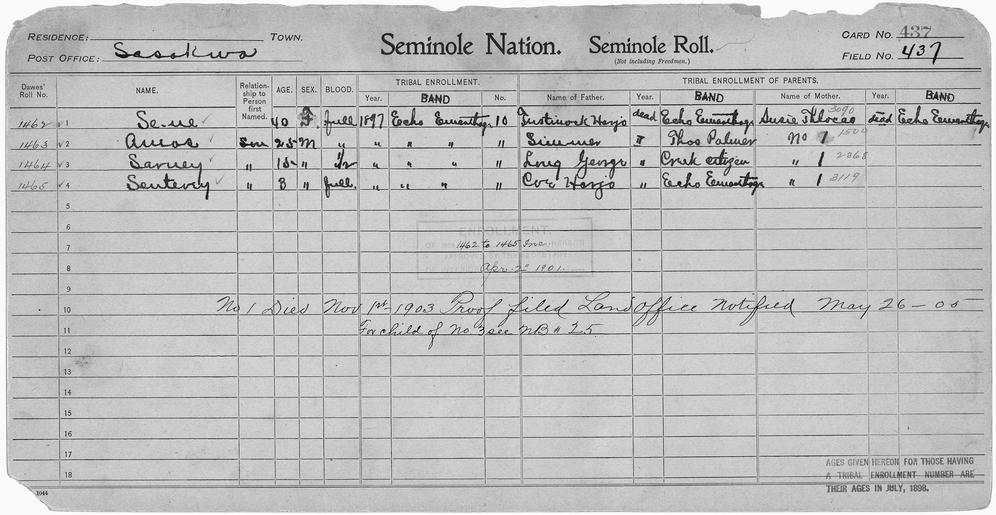 RESIDENCE: TOWN.
POST OFFICE: Sasakwa
Seminole Nation. Seminole Roll.
(Not including Freedmen.)
CARD NO. 437
FIELD NO. 437
Dawes' Roll No. NAME. Relationship to Person first Named. AGE. SEX. BLOOD. TRIBAL ENROLLMENT. Year. BAND No. TRIBAL ENROLLMENT OF PARENTS. Name of Father. Year. BAND Name of Mother. Year. BAND
1462 1 40 F full 1897 Echo 10 Harjo dead Echo Susie 3090 dead Echo
1463 2 Amos Son 25 M " " " " " Simmer " Thos Palmer No 1 1500
1464 3 Sarney " 15 " 1/2 " " " " Long George " Creek citizen " 1
1465 4 " 8 " full " " " " Harjo " Echo " 1 3119
5
6
7 ENROLLMENT. 1462 to 1465 Inc.
8 Apr. 2 1901.
9
10 No 1 Died Nov 1st 1903 Proof filed Land Office Notified May 26-05
11 For child of No 3 see NB # 25
12
13
14
15
16
17
18
AGES GIVEN HEREON FOR THOSE HAVING
A TRIBAL ENROLLMENT NUMBER ARE
THEIR AGES IN JULY, 1898.
1044